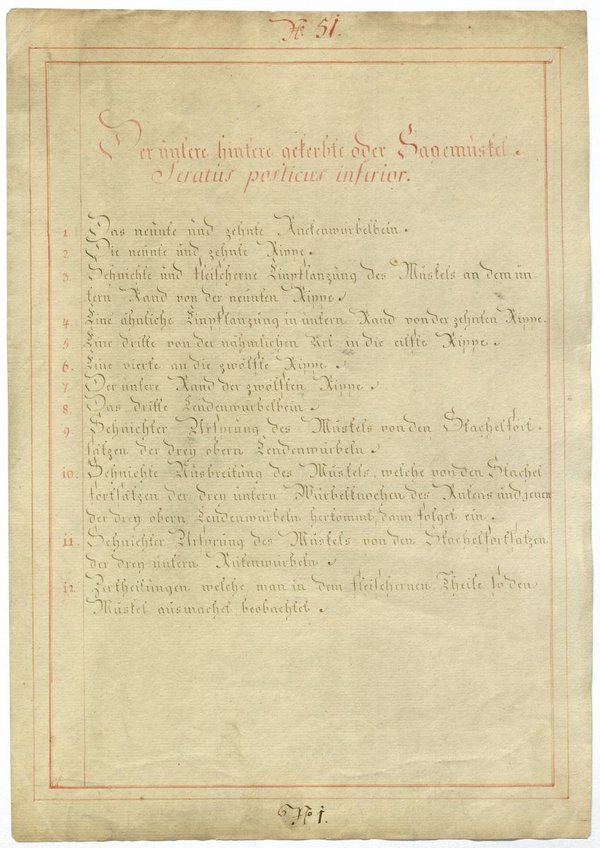 № 51.
Der untere hintere gekerbte oder Sagemuskel.
Seratus posticus inferior.
1 Das neunte und zehnte Rukenwurbelbein.
2 Die neunte und zehnte Rippe.
3 Sehnichte und fleischerne Einpflanzung des Muskels an dem un-
tern Rand von der neunten Rippe.
4 Eine ähnliche Einpflanzung in untern Rand von der zehnten Rippe.
5 Eine dritte von der nähmlichen Art in die eilfte Rippe.
6. Eine vierte an die zwölfte Rippe.
7 Der untere Rand der zwölften Rippe.
8. Das dritte Lendenwurbelbein.
9 Sehnichter Ursprung des Muskels von den Stachelfort-
sätzen der drey obern Lendenwurbeln.
10. Sehnichte Ausbreitung des Muskels, welche von den Stachel
fortsätzen der drey untern Wurbelknochen des Rukens und jenen
der drey obern Lendenwurbeln herkommt, dann folget ein.
11. Sehnichter Ursprung des Muskels von den Stachelfortsätzen
der drey untern Rukenwurbeln.
12. Zertheilungen welche man in dem fleischernen Theile so den
Muskel ausmachet beobachtet.
№ 1.